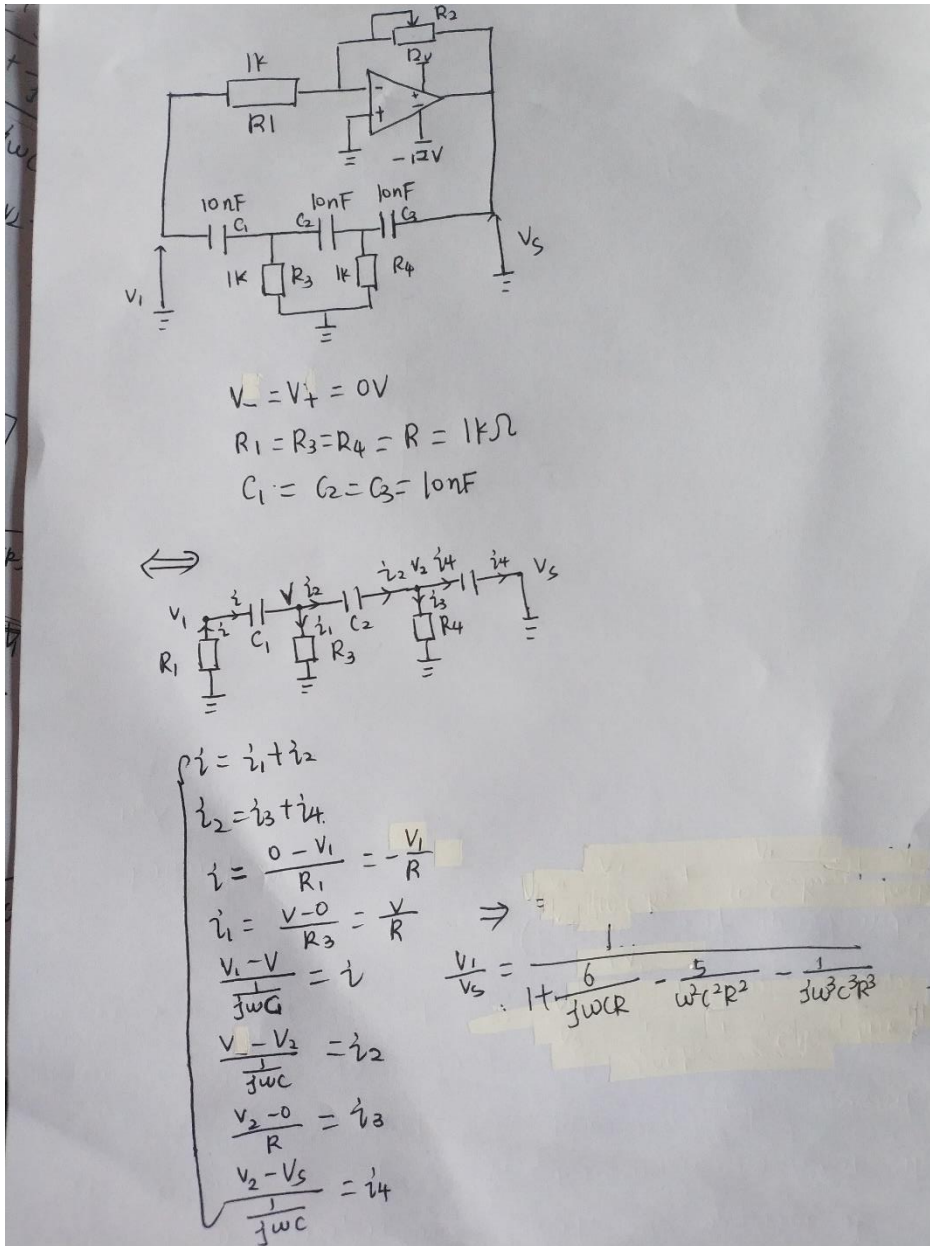 R2
1K
12V
-
+
+
-
R1
-12V
10nF
10nF
10nF
C1
C2
C3
1K
R3
1K
R4
V1
VS
V_ = V+ = 0V
R1 = R3 = R4 = R = 1kΩ
C1 = C2 = C3 = 10nF
⇔
V1 i V i2 i2 V2 i4 i4 VS
i C1 i1 C2 i3
R1 R3 R4
i = i1 + i2
i2 = i3 + i4.
i = (0 - V1)/R1 = -V1/R
i1 = (V-0)/R3 = V/R
(V1 - V)/(1/jωC) = i
(V - V2)/(1/jωC) = i2
(V2 - 0)/R = i3
(V2 - VS)/(1/jωC) = i4
⇒ =
V1/VS = 1/(1 + 6/(jωCR) - 5/(ω²C²R²) - 1/(jω³C³R³))